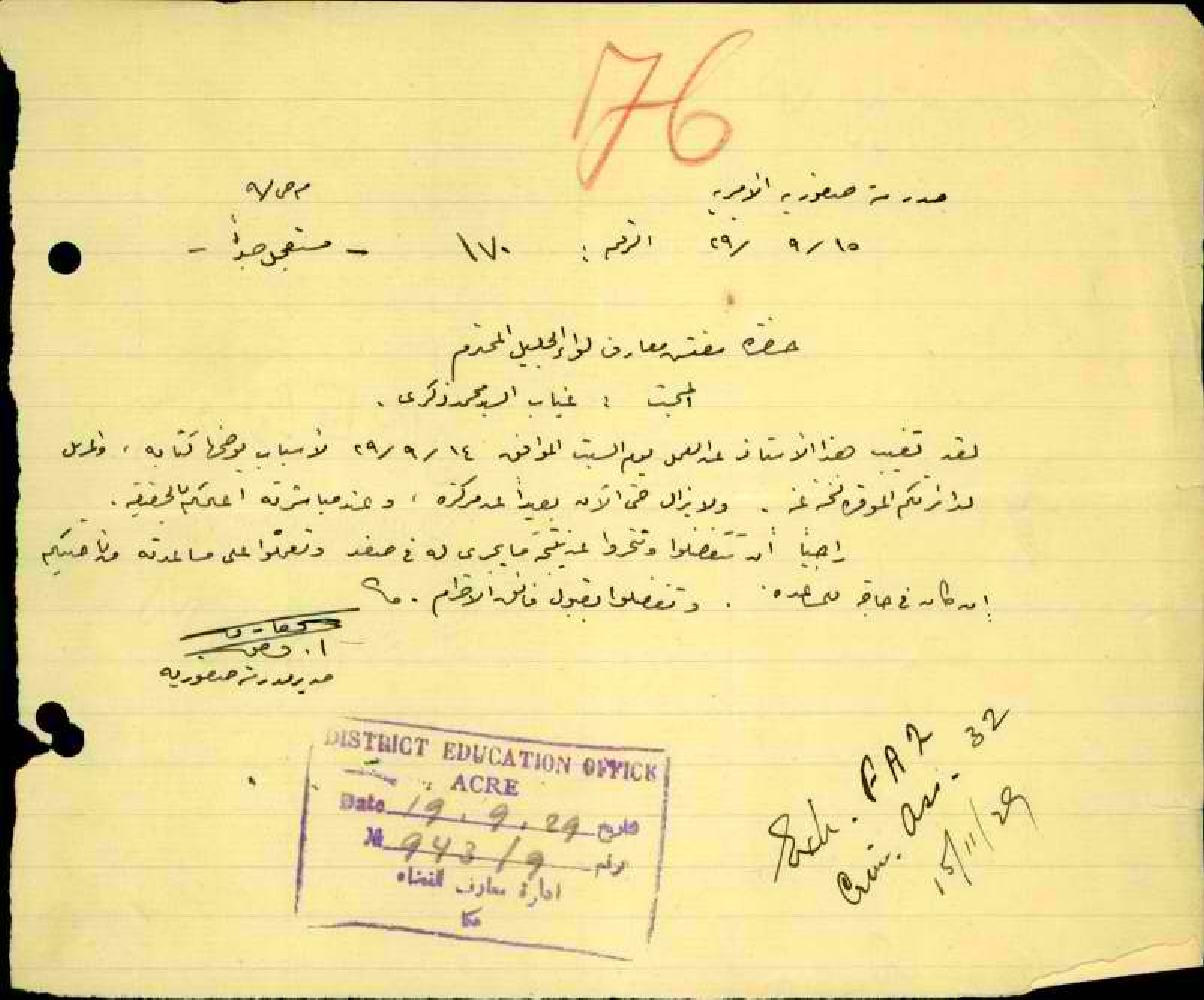 76
مدرسة صفورية الأميرية
م ص / ٩
١٥ / ٩ / ٢٩ الرقم : ١٧٠ - مستعجل جداً -
حضرة مفتش معارف لواء الجليل المحترم
المبحث : غياب السيد محمد زكري .
لقد تغيب هذا الأستاذ عن العمل يوم السبت الموافق ١٤ / ٩ / ٢٩ لأسباب يوضحها كتابه ، والمرسل
لدائرتكم الموقرة نسخة عنه . ولا يزال حتى الآن بعيداً عن مركزه ، وعند مباشرته اعلمكم بالحقيقة .
راجياً أن تتفضلوا وتتحروا عن نتيجة ما يجرى له في صفد وتعملوا على مساعدته من ناحيتكم
إن كان في حاجة للمساعدة . وتفضلوا بقبول فائق الاحترام .
مدير مدرسة صفورية
DISTRICT EDUCATION OFFICE
ACRE
Date 19.9.29 تاريخ
№ 943/9 رقم
ادارة معارف القضاء
عكا
Exh. FAZ 32
Crim. Ass.
15/11/29